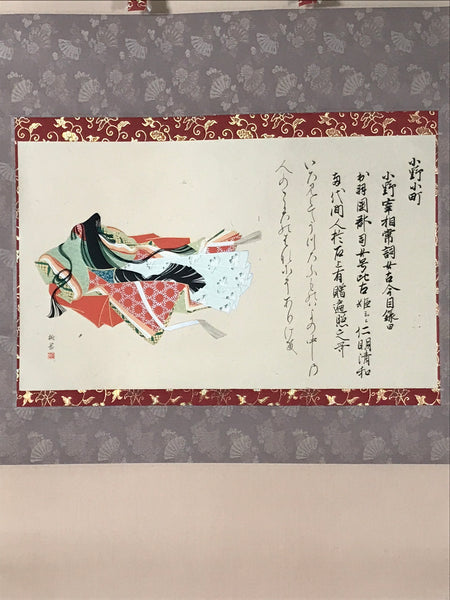 小野小町
小野宰相常詞女古今目録曰
出羽国郡司女号比古姫云々仁明清和
両代間人於石上有贈遍照之哥
いろみえてうつろふものはよの中の
人のこゝろのはなにそありける